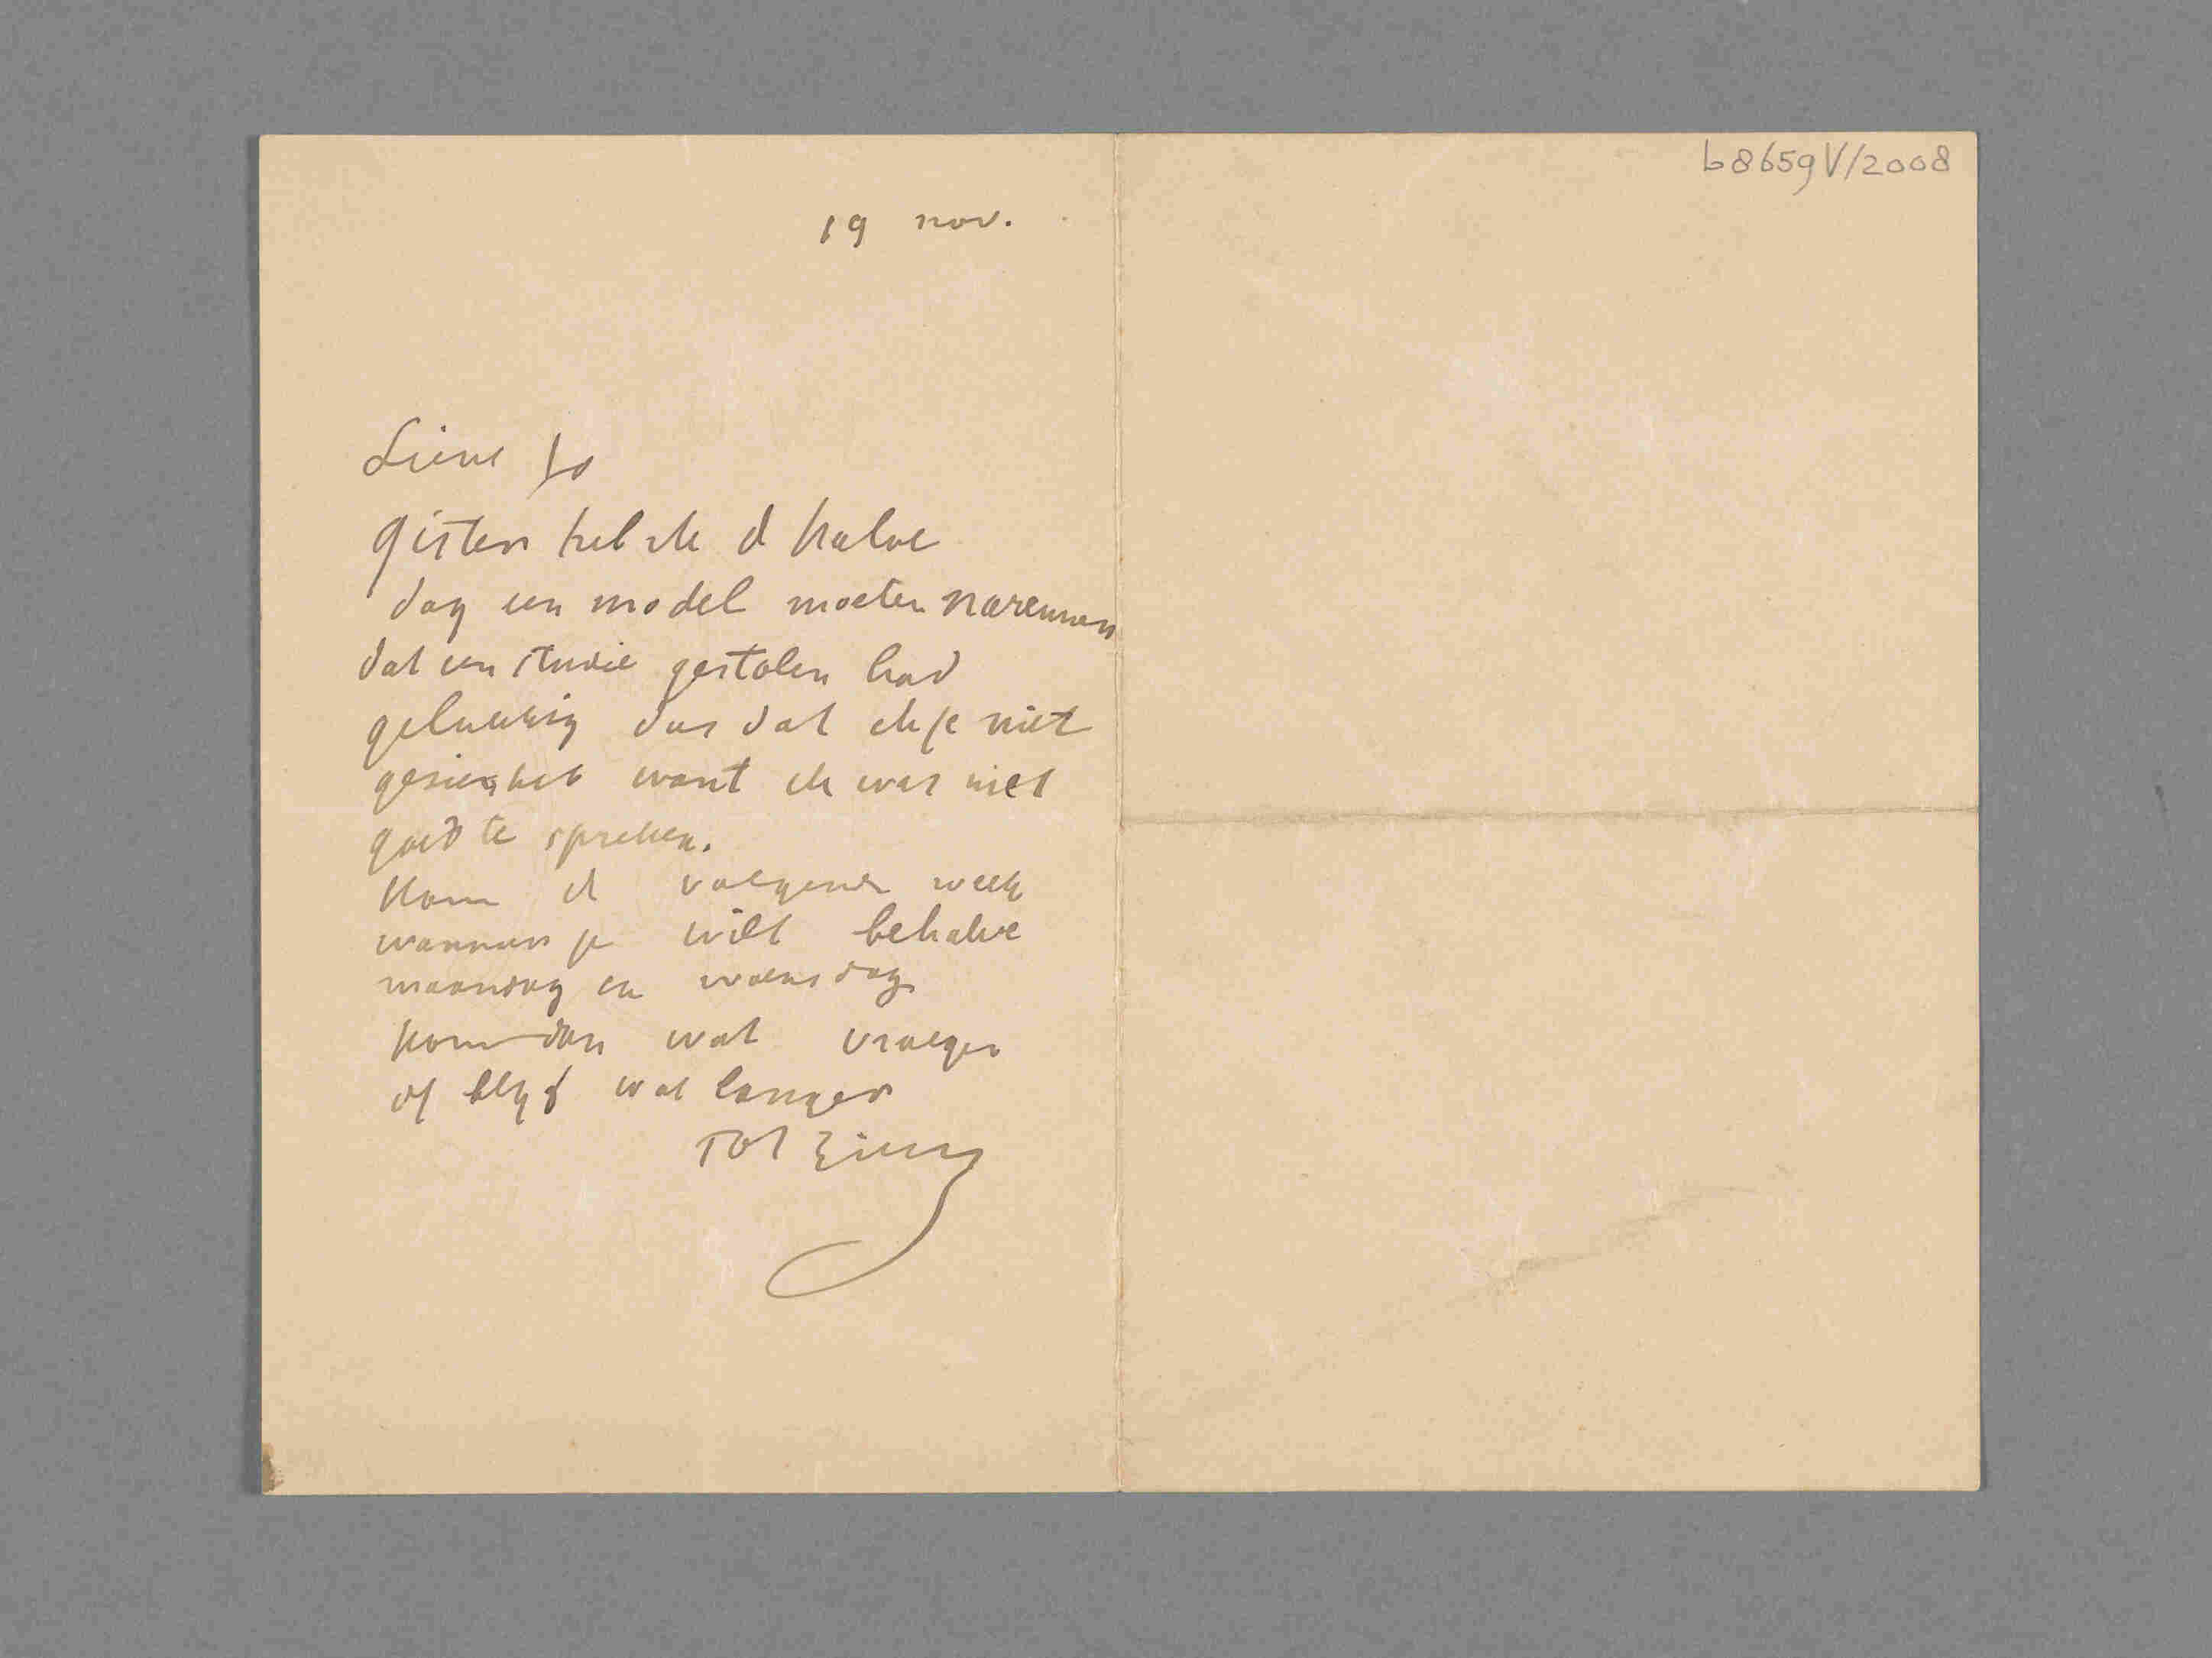 b8659 V/2008
19 nov.
Lieve Jo
Gisteren heb ik d halve
dag een model moeten narennen
dat een studie gestolen had
gelukkig dus dat ik je niet
gezien heb want ik was niet
goed te spreken.
Kom d volgende week
wanneer je wilt behalve
maandag en woensdag
kom dan wat vroeger
of blyf wat langer
Tot ziens